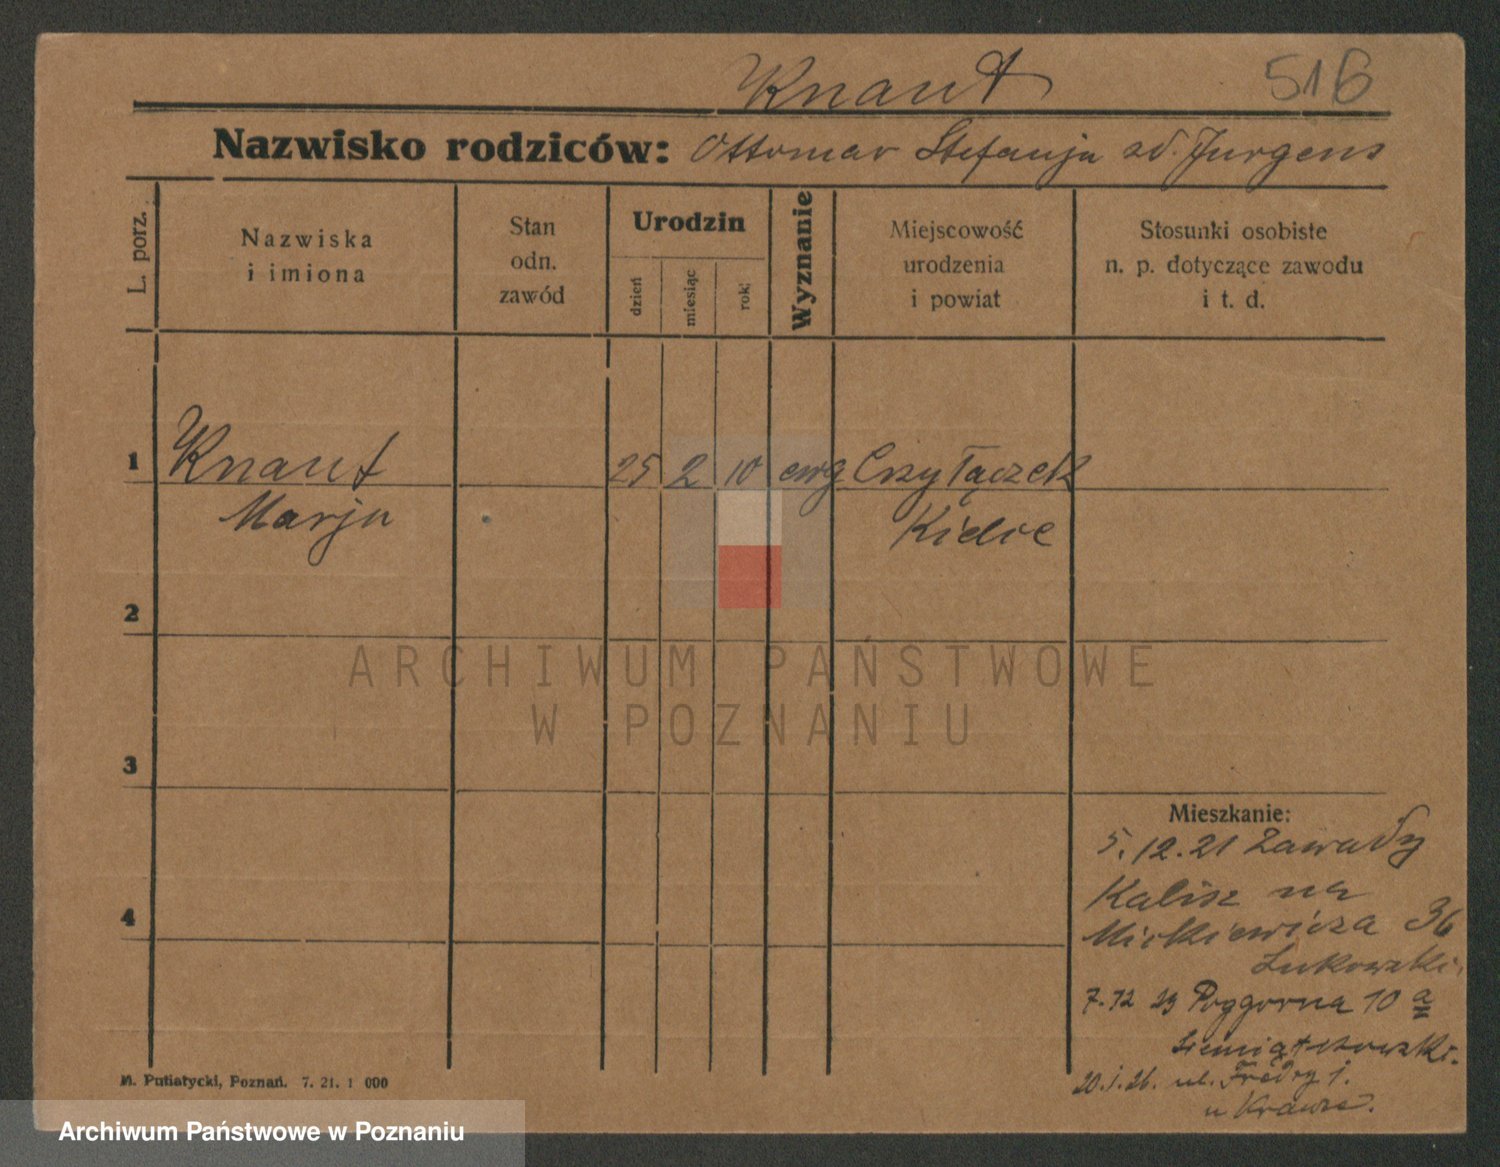 Knaut 516
Nazwisko rodziców: Ottomar Stefanja zd. Jurgens
L. porz.
Nazwiska
i imiona
Stan
odn.
zawód
Urodzin
dzień
miesiąc
rok
Wyznanie
Miejscowość
urodzenia
i powiat
Stosunki osobiste
n. p. dotyczące zawodu
i t. d.
1 Knaut 25 2 10 ewg
Marja
2
ARCHIWUM PAŃSTWOWE
W POZNANIU
3
Mieszkanie:
5.12.21 Zawady
4
Kalisz na
Mickiewicza 36
Lukowski
7.12 23 Poggorna 10 a
20.1.26. ul. Fredry 1.
u Krause.
M. Putiatycki, Poznań. 7. 21. 1 000
Archiwum Państwowe w Poznaniu